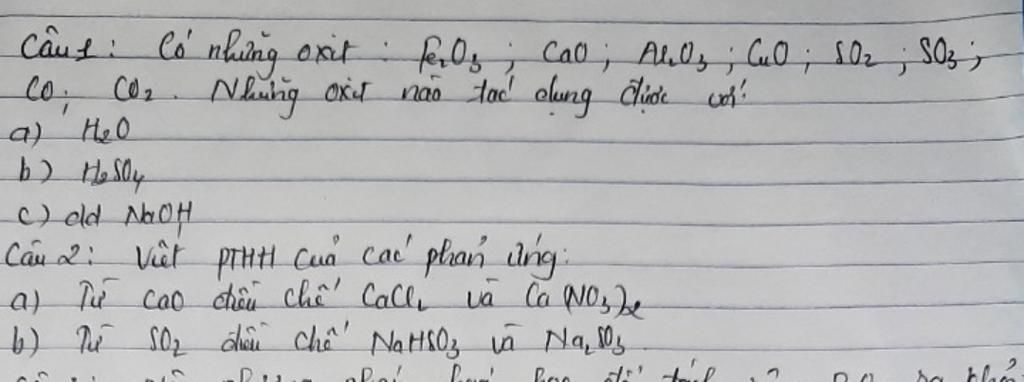 Câu 1: Có những oxit: Fe2O3; CaO; Al2O3; CuO; SO2; SO3;
CO; CO2. Những oxit nào tác dụng được với:
a) H2O
b) H2SO4
c) dd NaOH
Câu 2: Viết PTHH của các phản ứng:
a) Từ CaO điều chế CaCl2 và Ca(NO3)2
b) Từ SO2 điều chế NaHSO3 và Na2SO3